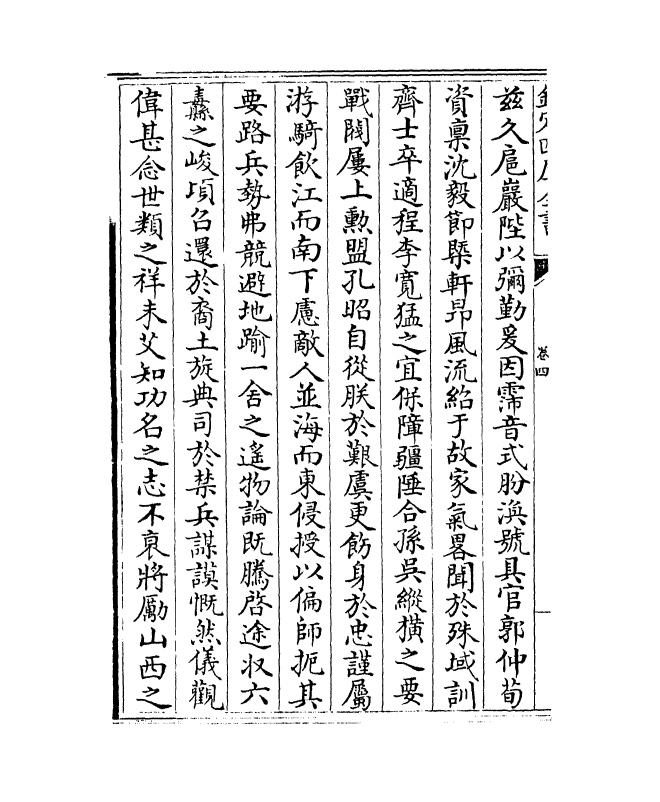 欽定四庫全書
卷四
茲久扈巖陛以彌勤爰因霈音式肦渙號具官郭仲荀
資稟沈毅節槩軒昂風流紹于故家氣畧聞於殊域訓
齊士卒適程李寛猛之宜保障疆陲合孫吳縱横之要
戰閥屢上勲盟孔昭自從朕於艱虞更飭身於忠謹屬
游騎飲江而南下慮敵人並海而東侵授以偏師扼其
要路兵勢弗競避地踰一舍之遙物論既騰啓途収六
纛之峻頃召還於裔土旋典司於禁兵謀謨慨然儀觀
偉甚念世類之祥未艾知功名之志不衰將勵山西之